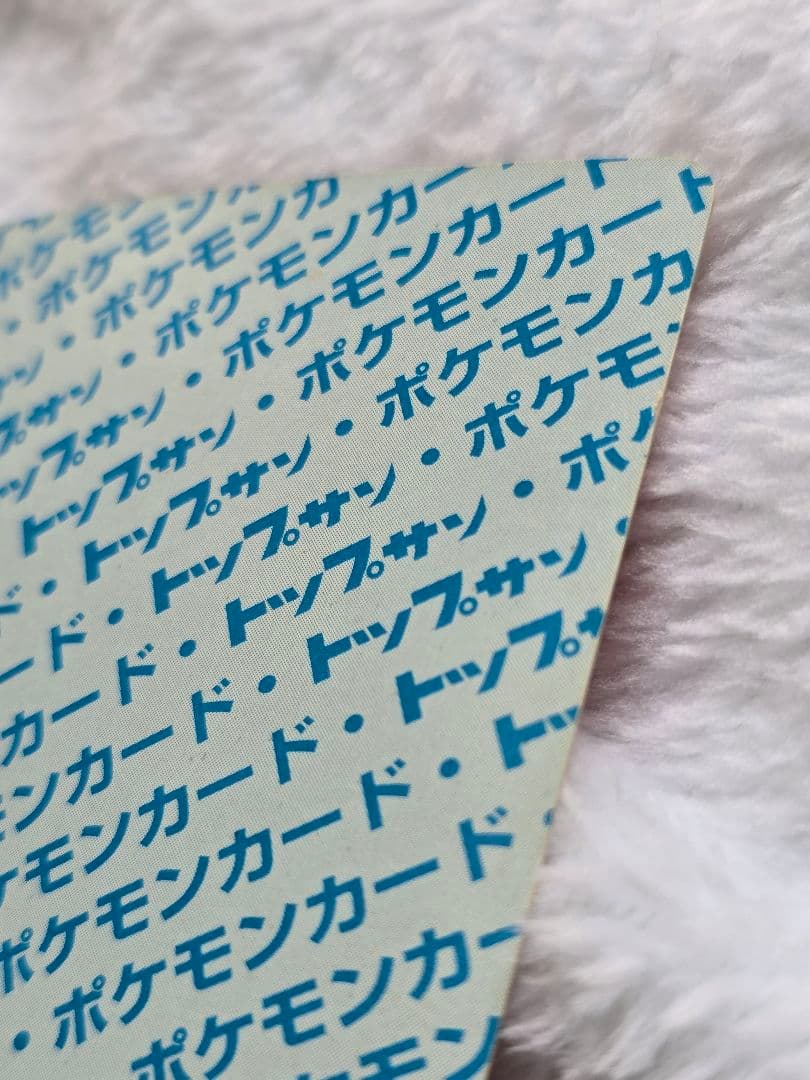 ポケモン
ポケモンカ
・ポケモンカー
・ポケモンカード
サン・ポケモンカード
プサン・ポケモンカード
ップサン・ポケモンカ
トップサン・ポケモ
ド・トップサン・ポケ
ード・トップサン・
カード・トップサン
モンカード・トップサ
ケモンカード・トッ
ポケモンカード・
・ポケモンカード・
ポケモンカー
モン